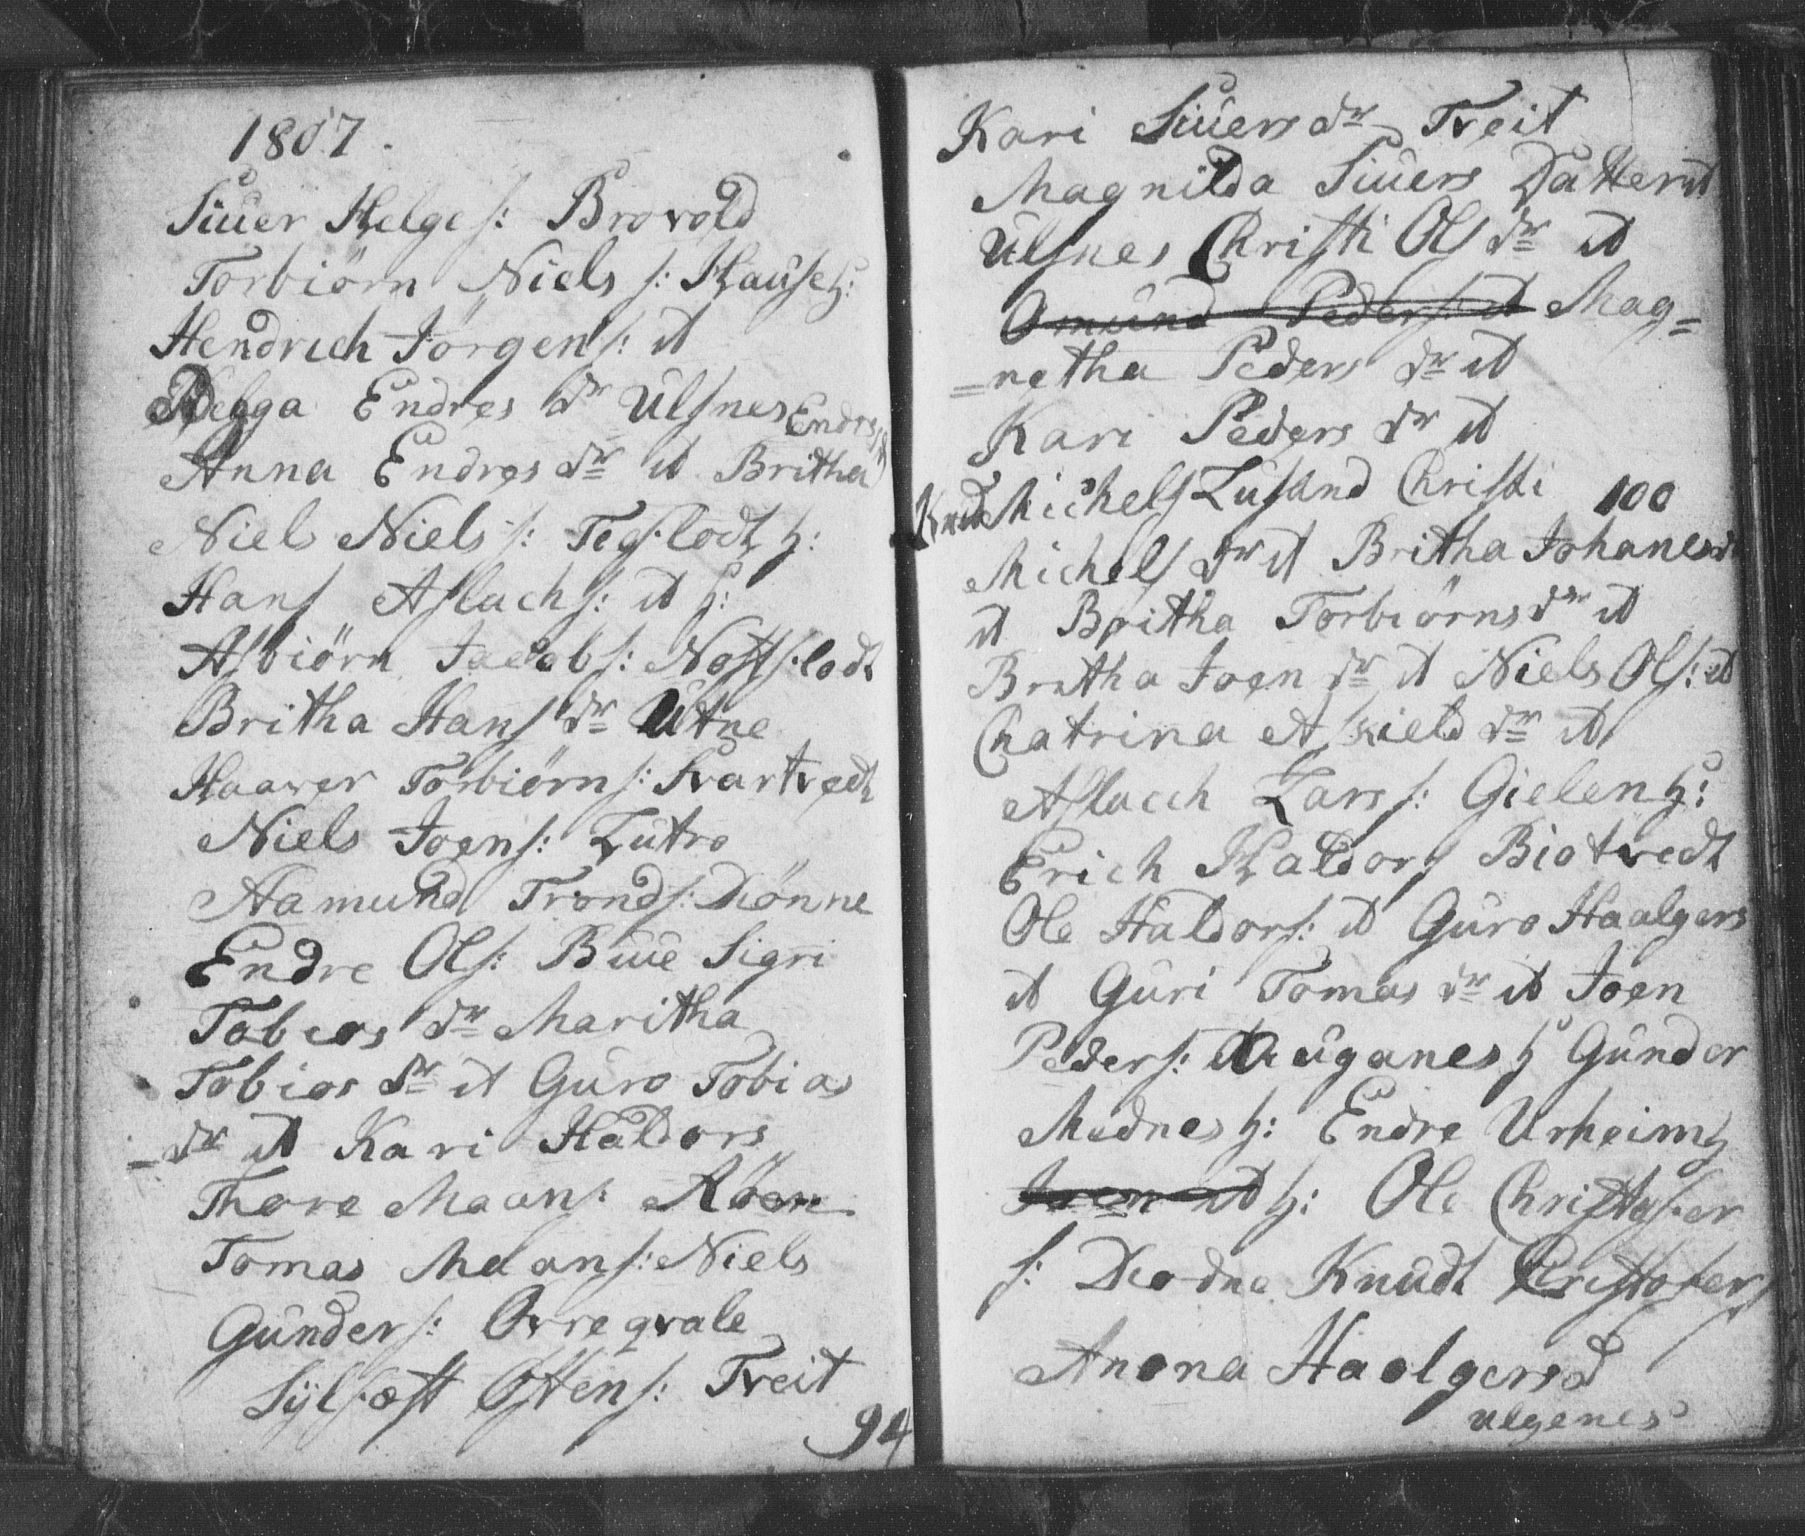 1807.
Siuer Helges: Brovold
Torbiörn Niels s: Hauseh:
Hendrich Jörgens: it
Helga Endres dr Ulsnes Endres
Anna Endres dr it Britha
Niel Niels s: Tegslodt h:
Hans Aslachs: it h:
Asbiörn Jacobs: Nestslodt
Britha Hans dr Utne
Haaver Torbiörns: Svartvedt
Niels Joens: Lutro
Aamund Tronds: Diönne
Endre Ols: Buue Sigri
Tobias dr Maritha
Tobias dr it Guro Tobias
=dr it Kari Haldors
Thore Maans:
Tomas Maans: Niels
Gunders: Ovregvale
Sylfæst Ostens: Treit
94
Kari Siuers dr Treit
Magnilda Siuers Datter it
Ulsnes Christi Ols dr it
Omund Peders: it Mag=
=netha Peders dr it
Kari Peders dr it
Knud Michels Lusand Christi 100
Michels dr it Britha Johanes dr
it Britha Torbiörns dr it
Britha Joen dr it Niels Ols: it
Chatrina Askield dr it
Aslach Lars s: Gielen h:
Erich Haldors Biotvedt
Ole Haldors: it Guro Haalgers
it Guri Tomas dr it Joen
Peders: Hauganes h Gunder
Mednes h: Endre Urheim h
Joen it h: Ole Christofer
s: Diodne Knudt Christofers
Anona Haolgers d
ulgenes